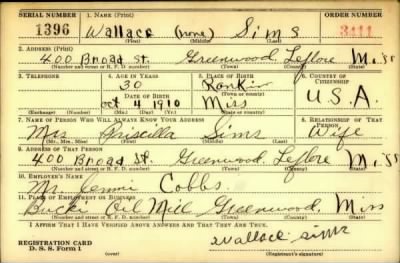 SERIAL NUMBER 1. NAME (Print) ORDER NUMBER
1396 Wallace (none) Sims 3411
(First) (Middle) (Last)
2. ADDRESS (Print)
400 Broad St. Greenwood, Leflore Miss
(Number and street or R. F. D. number) (Town) (County) (State)
3. TELEPHONE 4. AGE IN YEARS 5. PLACE OF BIRTH 6. COUNTRY OF CITIZENSHIP
30 Rankin
DATE OF BIRTH (Town or county)
Oct 4 1910 Miss U.S.A.
(Exchange) (Number) (Mo.) (Day) (Yr.) (State or country)
7. NAME OF PERSON WHO WILL ALWAYS KNOW YOUR ADDRESS 8. RELATIONSHIP OF THAT PERSON
Mrs Priscilla Sims Wife
(Mr., Mrs., Miss) (First) (Middle) (Last)
9. ADDRESS OF THAT PERSON
400 Broad St. Greenwood, Leflore Miss
(Number and street or R. F. D. number) (Town) (County) (State)
10. EMPLOYER'S NAME
Mr. Jimmie Cobbs.
11. PLACE OF EMPLOYMENT OR BUSINESS
Oil Mill Greenwood, Miss
(Number and street or R. F. D. number) (Town) (County) (State)
I AFFIRM THAT I HAVE VERIFIED ABOVE ANSWERS AND THAT THEY ARE TRUE.
REGISTRATION CARD Wallace Sims
D. S. S. Form 1 (Registrant's signature)